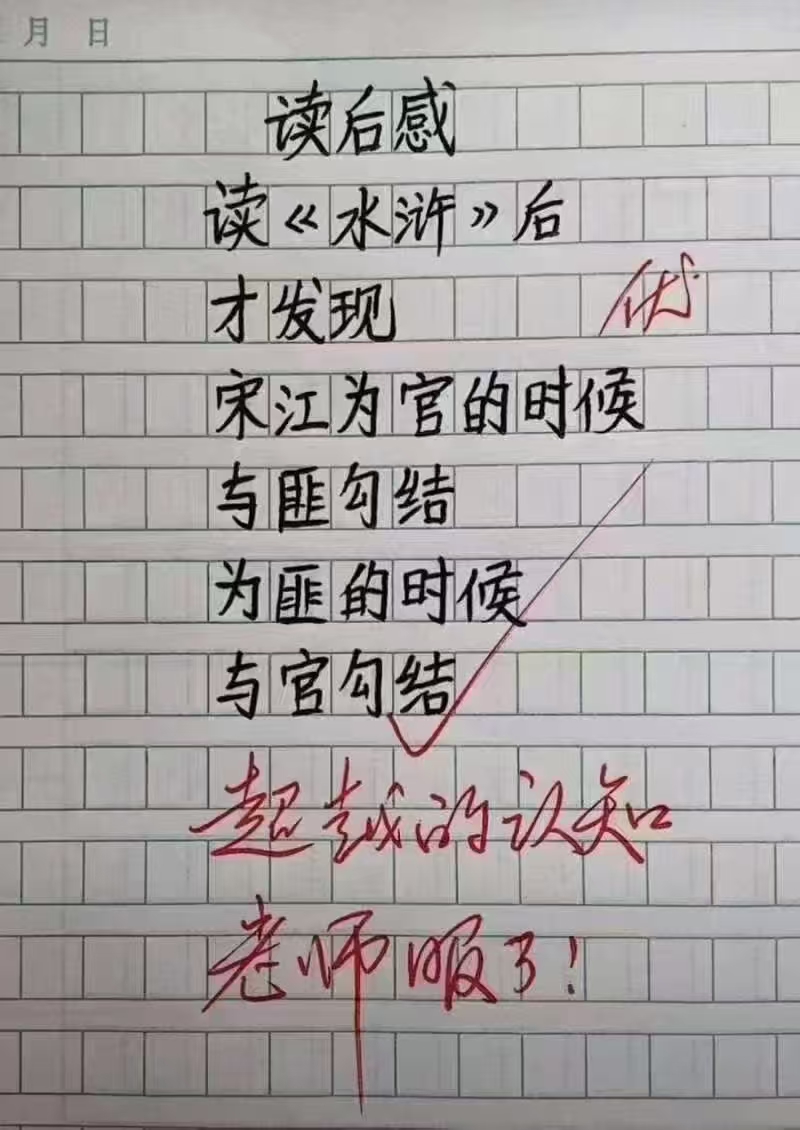 月 日
读后感
读《水浒》后
才发现
优
宋江为官的时候
与匪勾结
为匪的时候
与官勾结
超越的认知
老师服了!